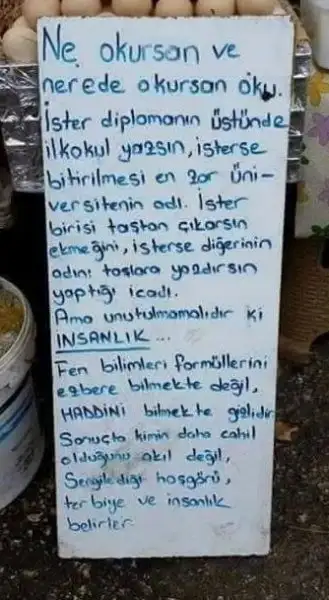 Ne okursan ve
nerede okursan oku.
İster diplomanın üstünde
ilkokul yazsın, isterse
bitirilmesi en zor Üni-
versitenin adı. İster
birisi taştan çıkarsın
ekmeğini, isterse diğerinin
adını taşlara yazdırsın
yaptığı icadı.
Ama unutulmamalıdır ki
İNSANLIK...
Fen bilimleri formüllerini
ezbere bilmekte değil,
HADDİNİ bilmekte gizlidir.
Sonuçta kimin daha cahil
olduğunu akıl değil,
Sergilediği hoşgörü,
terbiye ve insanlık
belirler.